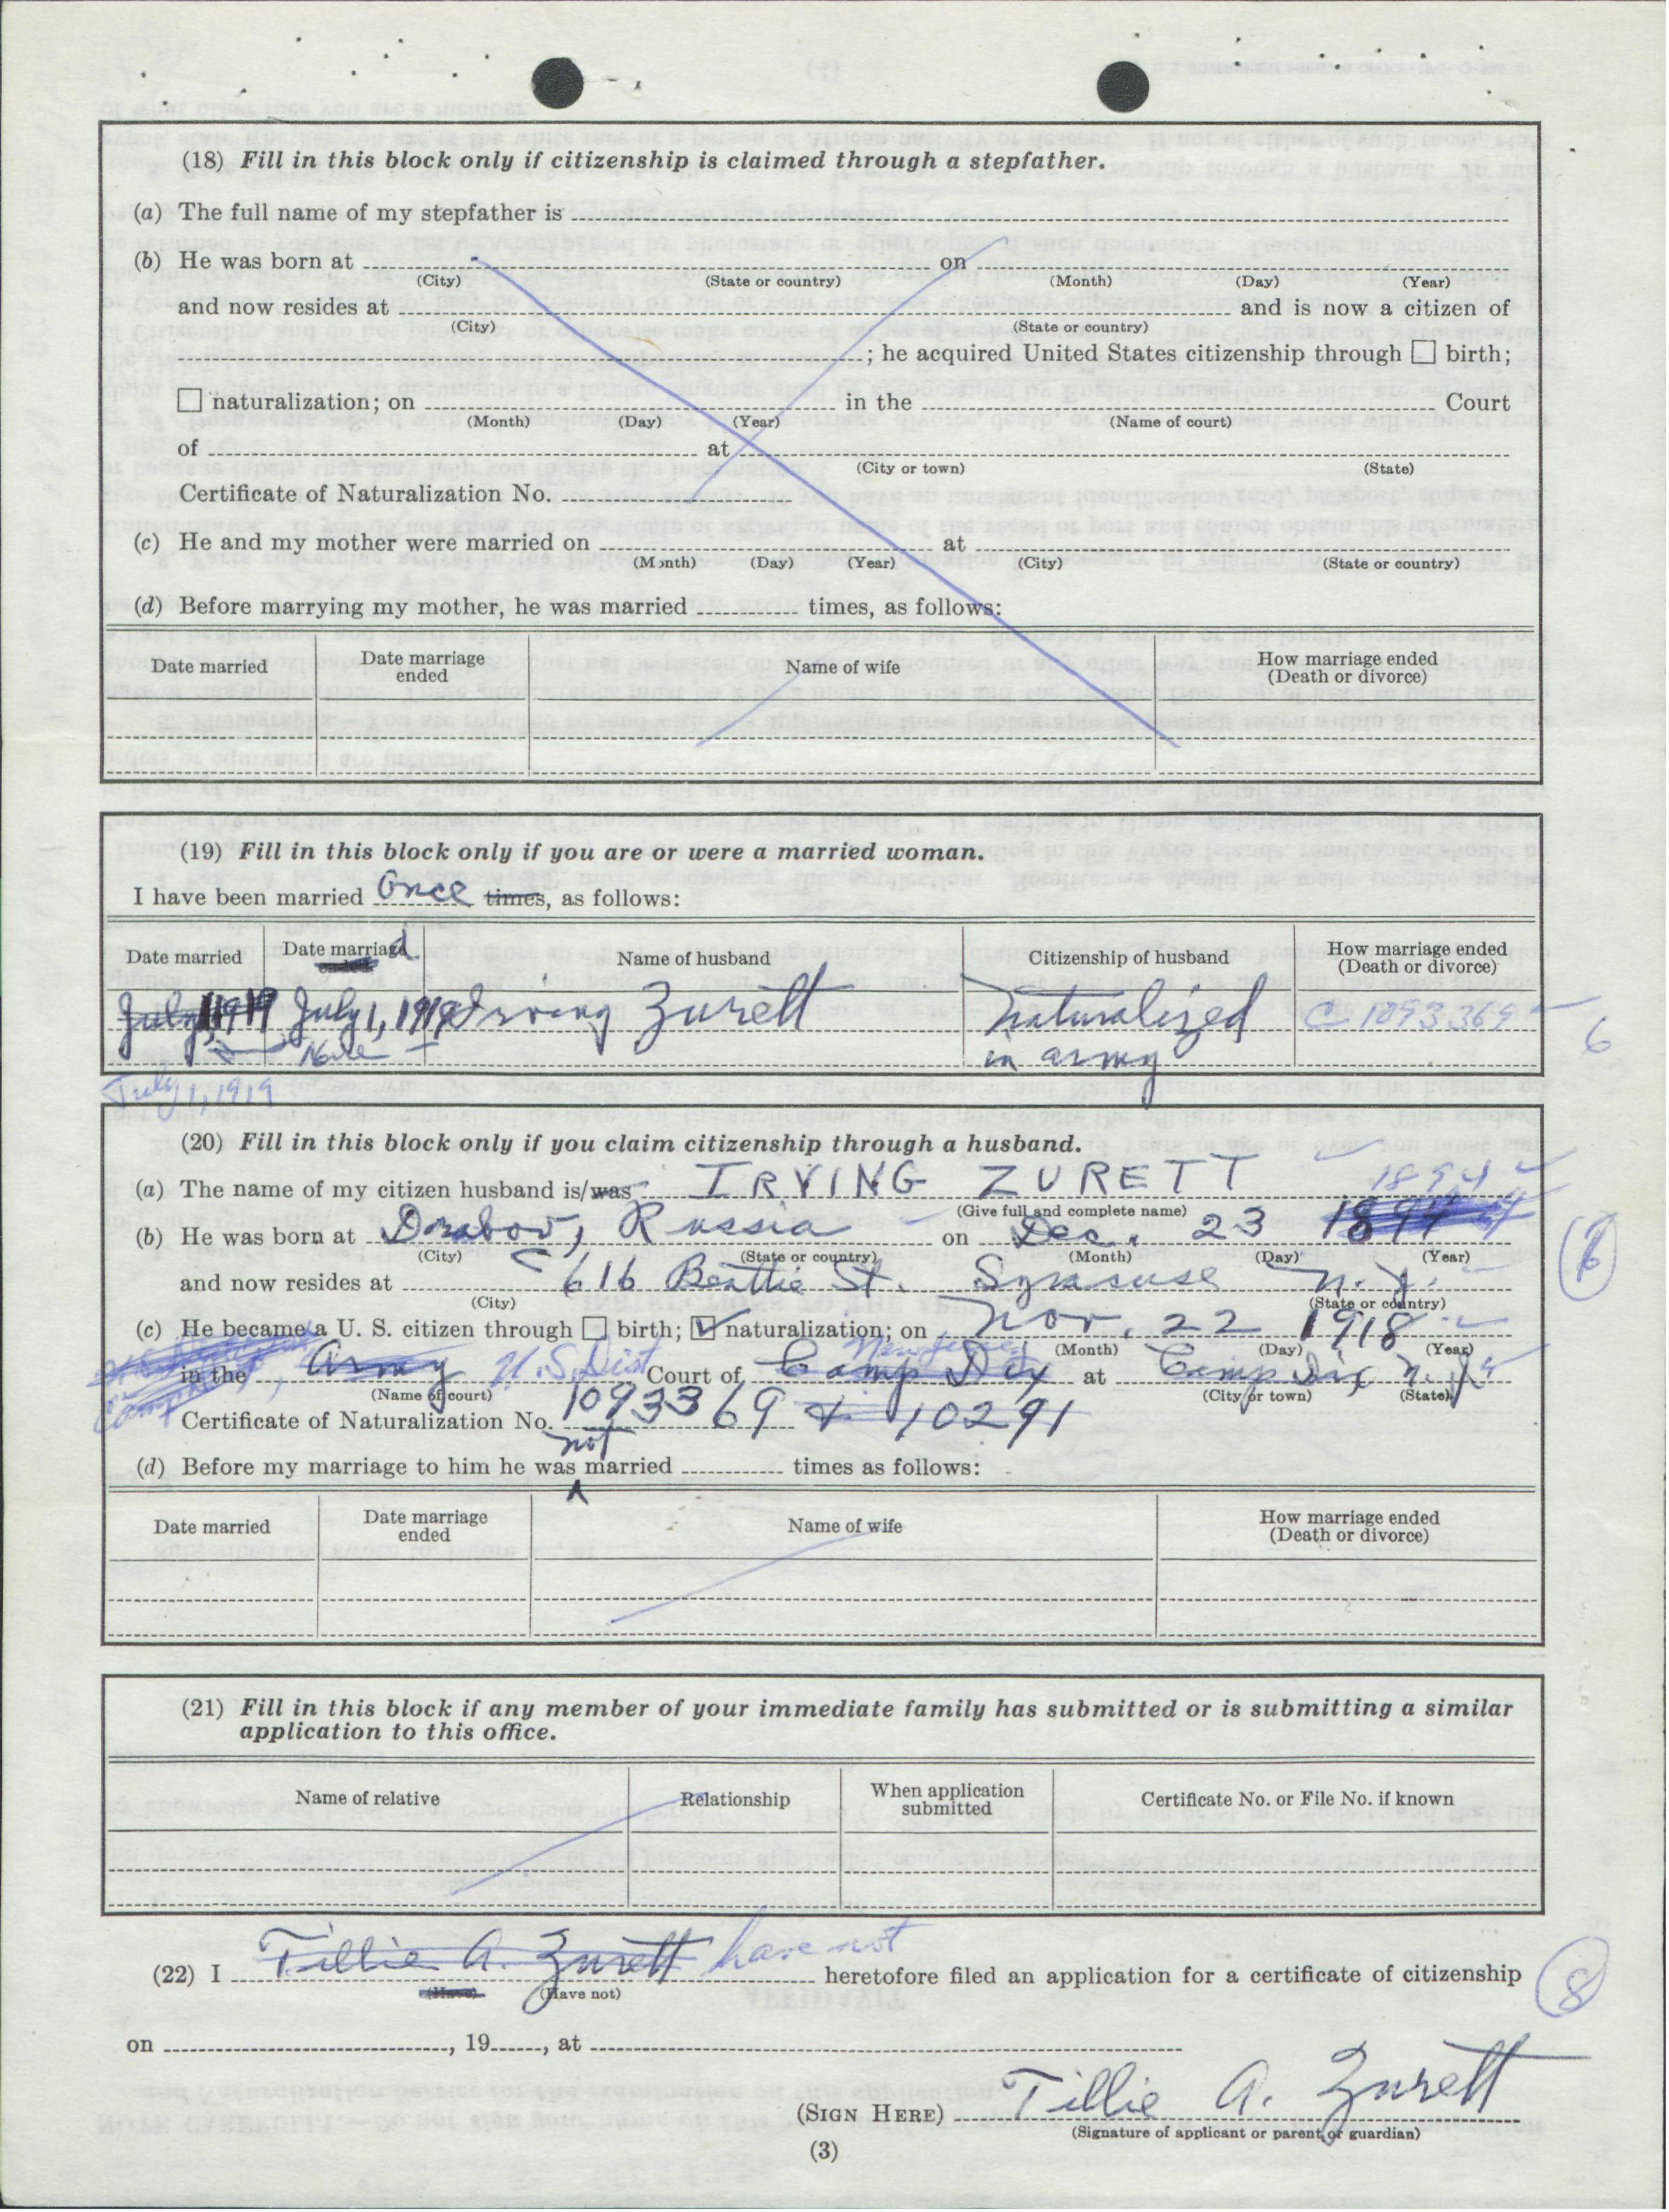 (18) Fill in this block only if citizenship is claimed through a stepfather.
(a) The full name of my stepfather is
(b) He was born at on
(City) (State or country) (Month) (Day) (Year)
and now resides at and is now a citizen of
(City) (State or country)
; he acquired United States citizenship through ☐ birth;
☐ naturalization; on in the Court
(Month) (Day) (Year) (Name of court)
of at
(City or town) (State)
Certificate of Naturalization No.
(c) He and my mother were married on at
(Month) (Day) (Year) (City) (State or country)
(d) Before marrying my mother, he was married times, as follows:
Date married Date marriage ended Name of wife How marriage ended (Death or divorce)
(19) Fill in this block only if you are or were a married woman.
I have been married Once times, as follows:
Date married Date marriad ended Name of husband Citizenship of husband How marriage ended (Death or divorce)
July 1 1919 July 1, 1919 Irving Zurett Naturalized C-1093369
in army 6
July 1, 1919
(20) Fill in this block only if you claim citizenship through a husband.
(a) The name of my citizen husband is/was IRVING ZURETT 1894
(Give full and complete name)
(b) He was born at Russia on Dec. 23 1894
(City) (State or country) (Month) (Day) (Year)
and now resides at 616 Beattie St. Syracuse N.Y.
(City) (State or country)
(c) He became a U. S. citizen through ☐ birth; ☑ naturalization; on Nov. 22 1918
(Month) (Day) (Year)
in the Army U.S. Dist Court of Camp Dix New Jersey at Camp Dix N.J.
(Name of court) (City or town) (State)
Certificate of Naturalization No. 1093369 & 10291
(d) Before my marriage to him he was not married times as follows:
Date married Date marriage ended Name of wife How marriage ended (Death or divorce)
(21) Fill in this block if any member of your immediate family has submitted or is submitting a similar
application to this office.
Name of relative Relationship When application submitted Certificate No. or File No. if known
(22) I Tillie A. Zurett have not heretofore filed an application for a certificate of citizenship 8
(Have) (Have not)
on , 19 , at
(SIGN HERE) Tillie A. Zurett
(Signature of applicant or parent or guardian)
(3)